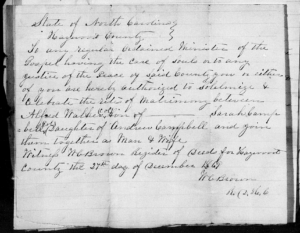 State of North Carolina }
Haywood County }
To any regular Ordained Minister of the
Gospel having the care of souls or to any
Justice of the Peace of said County you or either
of you are hereby authorized to Solemnize &
Celebrate the rites of Matrimony between
Alfred Son of Sarah Camp
bell, Daughter of Andrew Campbell, and join
them together as Man & Wife
Witness W C Brown Register of Deeds for Haywood
County the 27th day of December
W C Brown